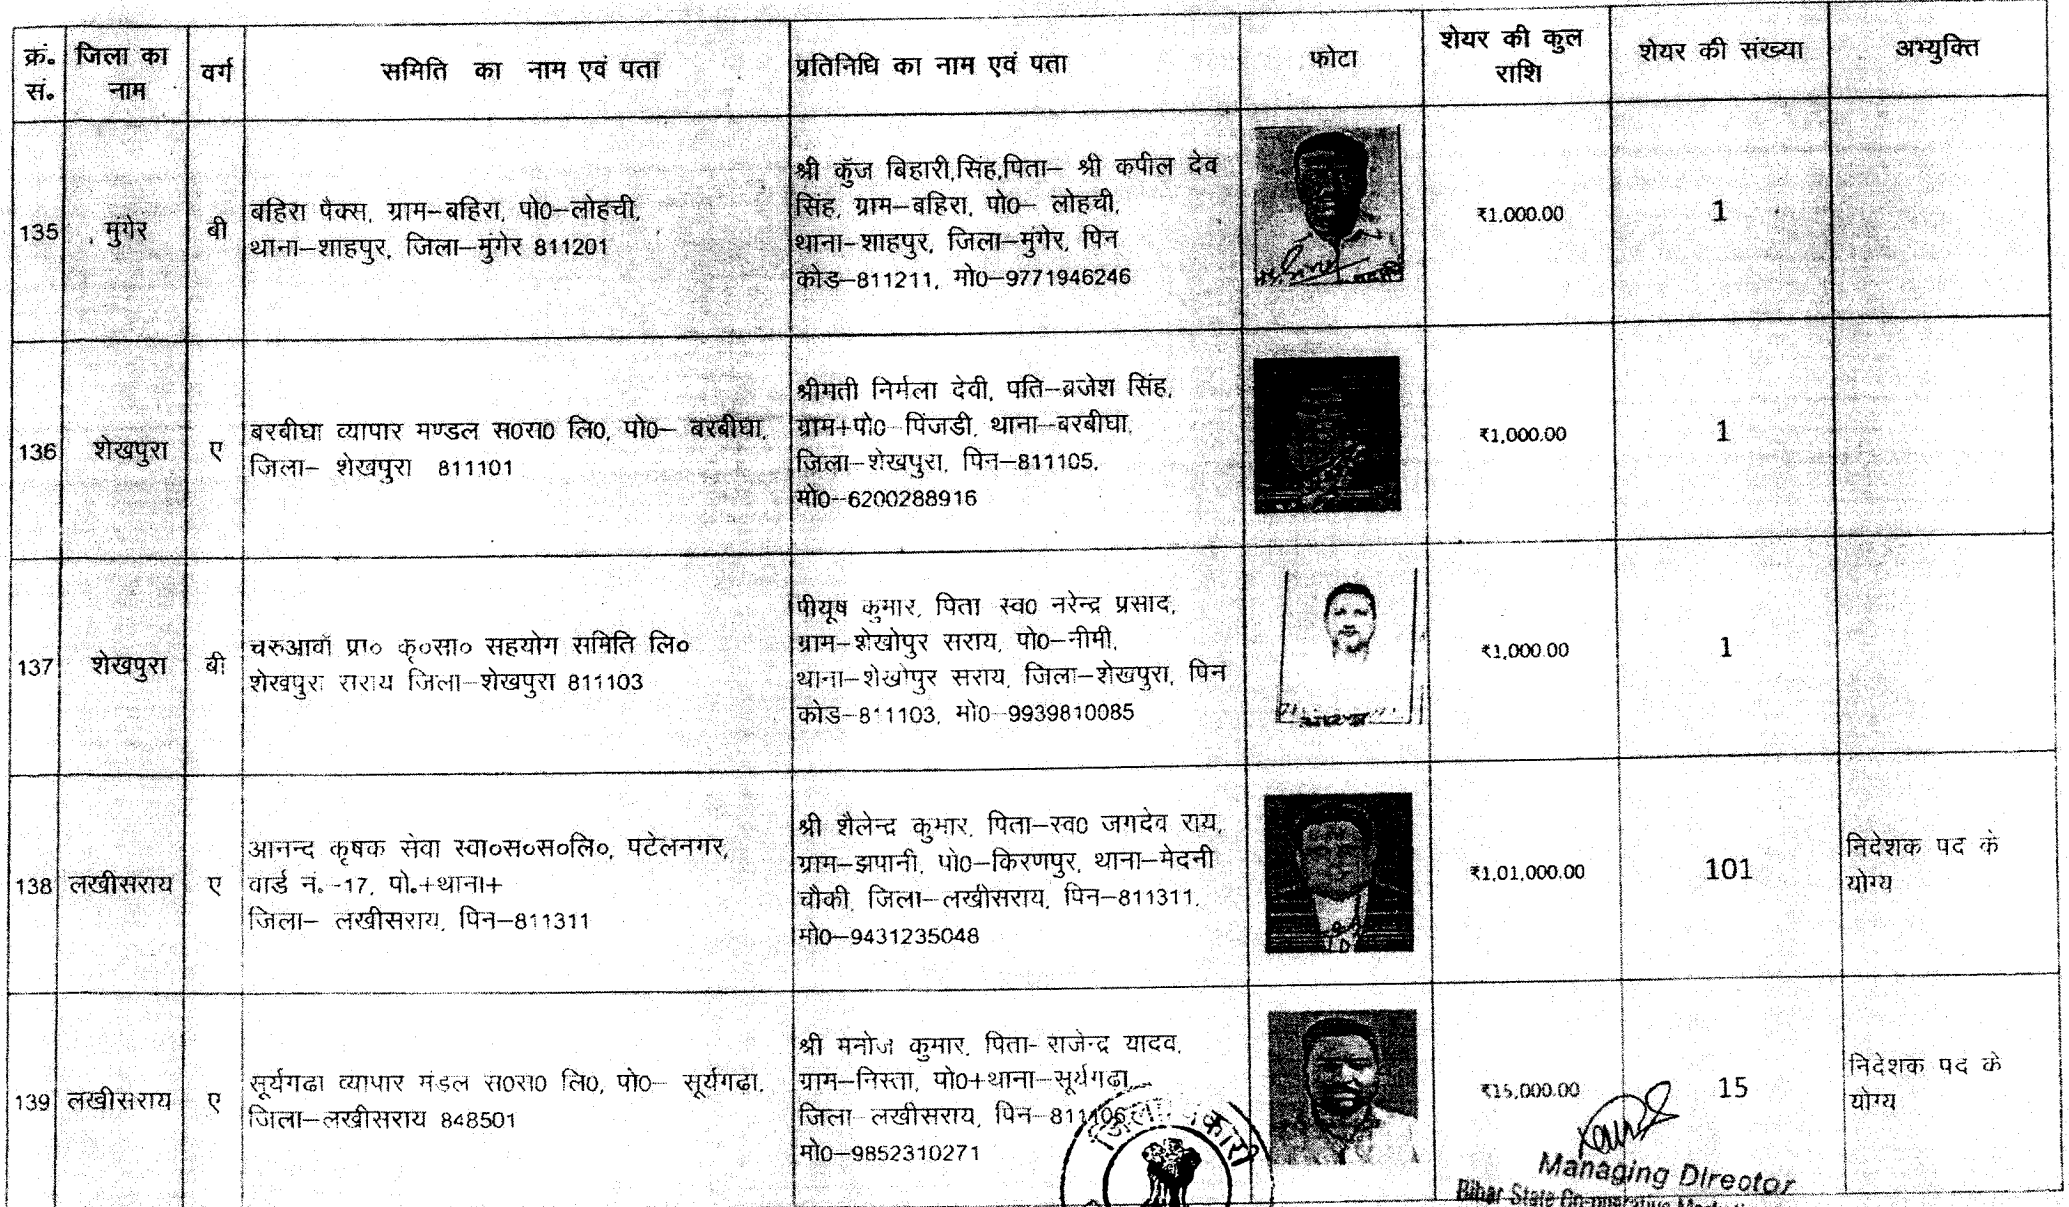 क्रं. सं. जिला का नाम वर्ग समिति का नाम एवं पता प्रतिनिधि का नाम एवं पता फोटा शेयर की कुल राशि शेयर की संख्या अभ्युक्ति
135 मुंगेर बी
बहिरा पैक्स, ग्राम–बहिरा, पो0–लोहची,
थाना–शाहपुर, जिला–मुंगेर 811201
श्री कुँज बिहारी,सिंह,पिता– श्री कपील देव
सिंह, ग्राम–बहिरा, पो0– लोहची,
थाना–शाहपुर, जिला–मुंगेर, पिन
कोड–811211, मो0–9771946246
₹1,000.00 1
136 शेखपुरा ए
बरबीघा व्यापार मण्डल स0स0 लि0, पो0– बरबीघा,
जिला– शेखपुरा 811101
श्रीमती निर्मला देवी, पति–ब्रजेश सिंह,
ग्राम+पो0–पिंजडी, थाना–बरबीघा,
जिला–शेखपुरा, पिन–811105,
मो0–6200288916
₹1,000.00 1
137 शेखपुरा बी
चरुआवाँ प्रा० कृ०सा० सहयोग समिति लि०
शेखपुरा सराय जिला–शेखपुरा 811103
पीयूष कुमार, पिता स्व0 नरेन्द्र प्रसाद,
ग्राम–शेखोपुर सराय, पो0–नीमी,
थाना–शेखोपुर सराय, जिला–शेखपुरा, पिन
कोड–811103, मो0–9939810085
₹1,000.00 1
138 लखीसराय ए
आनन्द कृषक सेवा स्वा०स०स०लि०, पटेलनगर,
वार्ड नं.-17, पो.+थाना+
जिला– लखीसराय, पिन–811311
श्री शैलेन्द्र कुमार, पिता–स्व0 जगदेव राय,
ग्राम–झपानी, पो0–किरणपुर, थाना–मेदनी
चौकी, जिला–लखीसराय, पिन–811311,
मो0–9431235048
₹1,01,000.00 101
निदेशक पद के
योग्य
139 लखीसराय ए
सूर्यगढा व्यापार मंडल स0स0 लि0, पो0– सूर्यगढा,
जिला–लखीसराय 848501
श्री मनोज कुमार, पिता- राजेन्द्र यादव,
ग्राम–निस्ता, पो0+थाना–सूर्यगढा,
जिला लखीसराय, पिन–811106
मो0–9852310271
₹15,000.00 15
निदेशक पद के
योग्य
Managing Director
Bihar State Co-operative